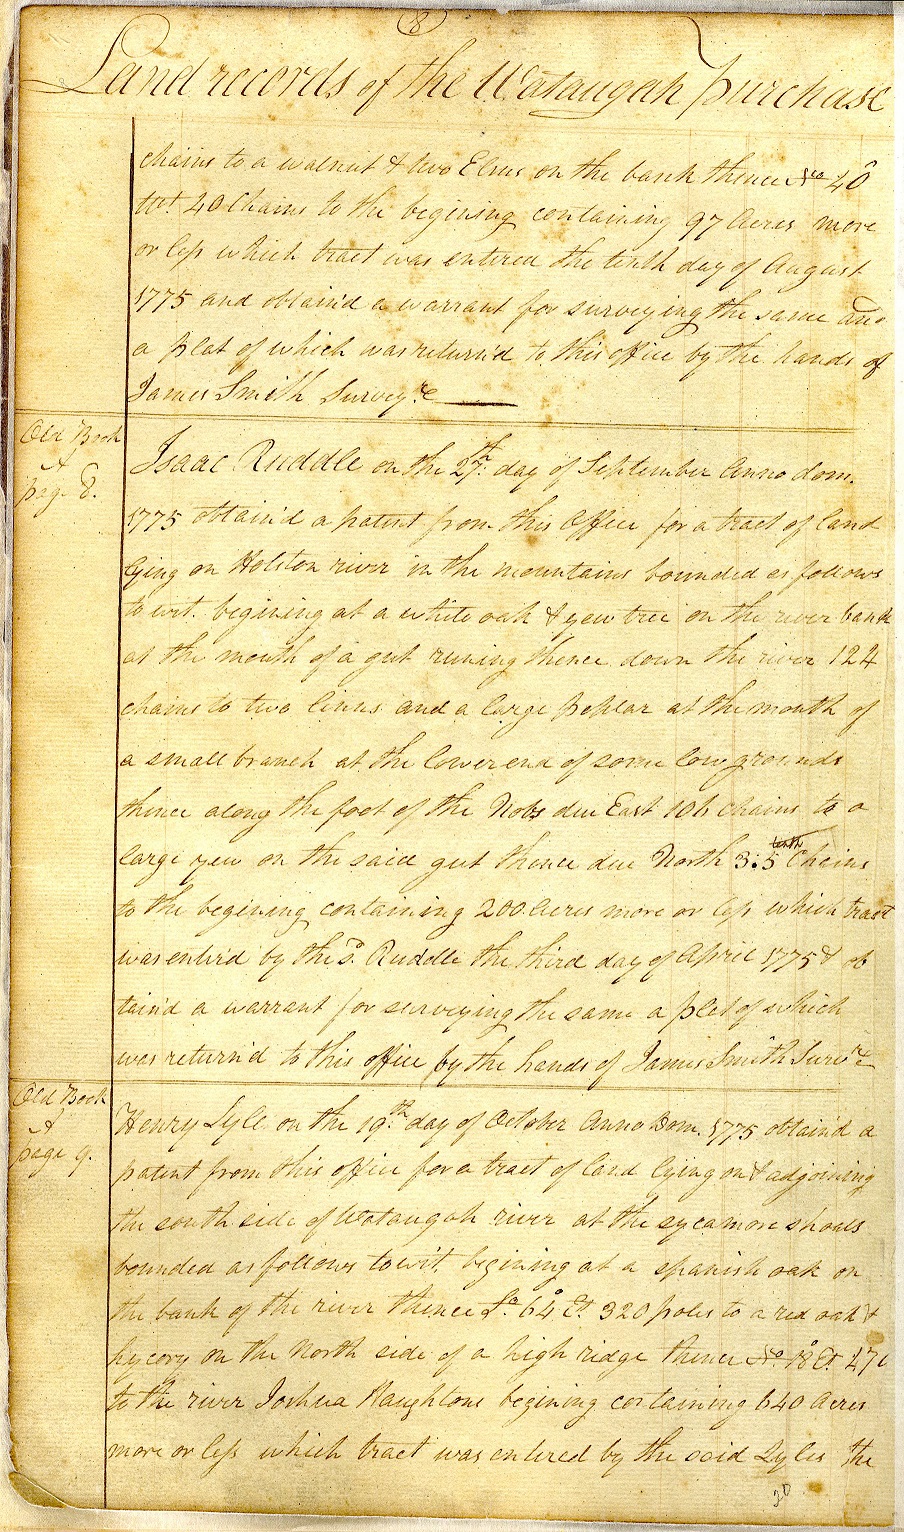 8
Land records of the Wataugah purchase
chains to a walnut & two Elms on the bank thence No 40
Wt. 40 Chains to the begining containing 97 Acres more
or less which tract was entered the tenth day of August
1775 and obtain'd a warrant for surveying the same and
a plat of which was return'd to this office by the hands of
James Smith Survey.re
Old Book
A
pag. 8.
Isaac Ruddle on the 27th. day of September Anno dom.
1775 obtain'd a patent from this Office for a tract of land
lying on Holston river in the mountains bounded as follows
to wit. begining at a white oak & yew tree on the river bank
at the mouth of a gut runing thence down the river 124
chains to two linns and a large poplar at the mouth of
a small branch at the lower end of some low grounds
thence along the foot of the Nobs due East 106 chains to a
large yew on the said gut thence due North 3:5 tenth Chains
to the begining containing 200 Acres more or less which tract
was enter'd by the sd. Ruddle the third day of April 1775 & ob
tain'd a warrant for surveying the same a plat of which
was return'd to this office by the hands of James Smith Survre
Old Book
A
page 9.
Henry Lyle on the 19th. day of October Anno Dom. 1775 obtain'd a
patent from this office for a tract of land lying on & adjoining
the south side of Wataugah river at the sycamore shoals
bounded as follows to wit. begining at a spanish oak on
the bank of the river thence So. 64° Et. 320 poles to a red oak &
hycory on the North side of a high ridge thence No. 18° Et. 270
to the river Joshua Haughtons begining containing 640 Acres
more or less which tract was entered by the said Lyles the
20